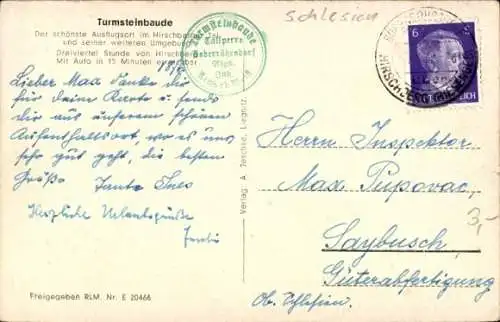 Turmsteinbaude
Der schönste Ausflugsort im Hirschberger Tal
und seiner weiteren Umgebung
Dreiviertel Stunde von Hirschberg
Mit Auto in 15 Minuten erreichbar
Schlesien
Turmsteinbaude
Talsperre
Boberröhrsdorf
Lieber Max Danke dir
für deine Karte u. sende
dir aus unserem schönen
Aufenthaltsort, wo es uns
sehr gut geht, die besten
Grüße Tante Ines
Herzliche Urlaubsgrüße
6
HIRSCHBERG
Herrn Inspektor
Max Pupovac,
Saybusch
Güterabfertigung
Ob. Schlesien
3,-
Verlag A. Jeschke, Liegnitz.
Freigegeben RLM. Nr. E 20466